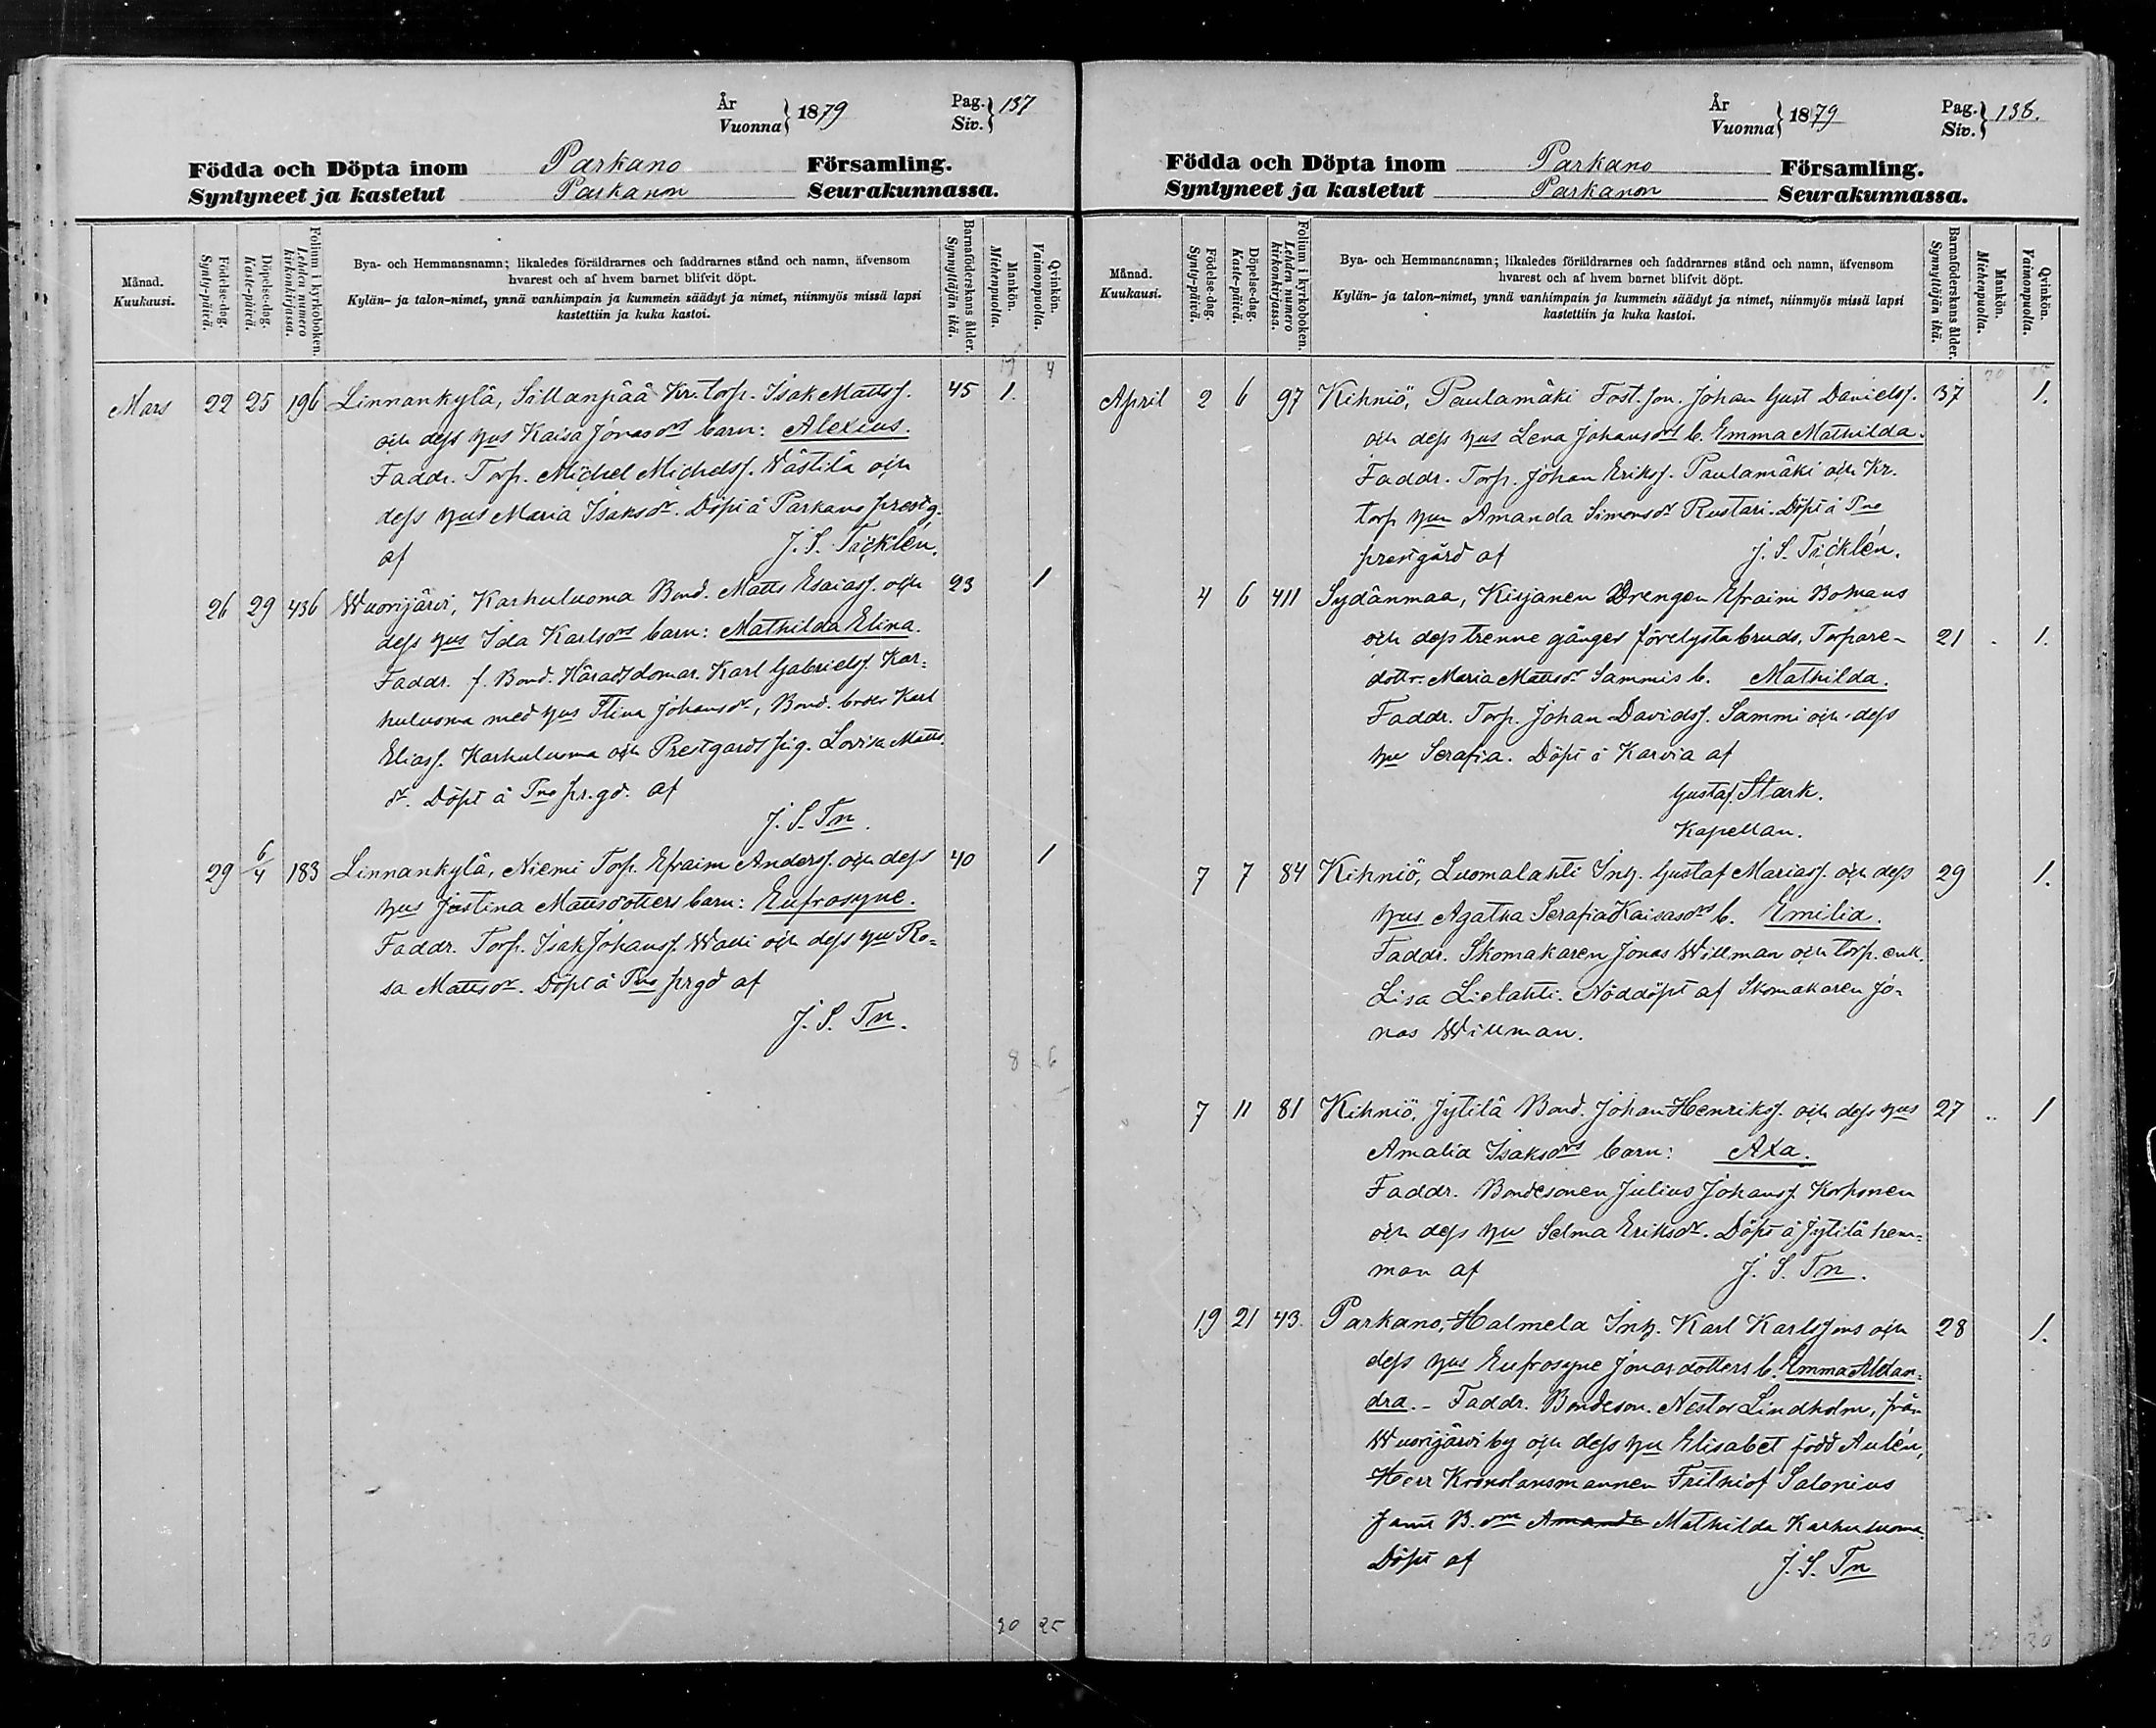 År
Vuonna } 1879
Pag.
Siv. } 137
Födda och Döpta inom Parkano Församling.
Syntyneet ja kastetut Parkanon Seurakunnassa.
Månad.
Kuukausi.
Födelse-dag.
Synty-päivä.
Döpelse-dag.
Kaste-päivä.
Folium i kyrkoboken.
Lehden numero kirkonkirjassa.
Bya- och Hemmansnamn; likaledes föräldrarnes och faddrarnes stånd och namn, äfvensom
hvarest och af hvem barnet blifvit döpt.
Kylän- ja talon-nimet, ynnä vanhimpain ja kummein säädyt ja nimet, niinmyös missä lapsi
kastettiin ja kuka kastoi.
Barnaföderskans ålder.
Synnyttäjän ikä.
Mankön.
Miehenpuolta.
Qvinkön.
Vaimonpuolta.
4
Mars 22 25 196 Linnankylä, Sillanpää Kr. torp. Isak Mattss. 45 1.
och dess hus Kaisa Jonasdrs barn: Alexius.
Faddr. Torp. Michel Michelss. Wästilä och
dess hus Maria Isaksdr. Döpt å Parkano prestg.
af J. S. Täcklén.
26 29 436 Wuorijärvi, Karhuluoma Bond. Matts Esaiass. och 23 1
dess hus Ida Karlsdrs barn: Mathilda Elina.
Faddr. f. Bond. Häradsdomar. Karl Gabrielss. Kar=
huluoma med hus Stina Johansdr, Bond. broder Karl
Eliass. Karhuluoma och Prestgards pig. Lovisa Matts
dr. Döpt å Pno pr.gd. af
J. S. Tn.
29 6/4 183 Linnankylä, Niemi Torp. Efraim Anderss. och dess 40 1
hus Justina Mattsdotters barn: Eufrosyne.
Faddr. Torp. Isak Johanss. Walli och dess hus Ro=
sa Mattsdr. Döpt å Pno prgd af
J. S. Tn.
8 6
20 25
År
Vuonna } 1879
Pag.
Siv. } 138.
Födda och Döpta inom Parkano Församling.
Syntyneet ja kastetut Parkanon Seurakunnassa.
Månad.
Kuukausi.
Födelse-dag.
Synty-päivä.
Döpelse-dag.
Kaste-päivä.
Folium i kyrkoboken.
Lehden numero kirkonkirjassa.
Bya- och Hemmansnamn; likaledes föräldrarnes och faddrarnes stånd och namn, äfvensom
hvarest och af hvem barnet blifvit döpt.
Kylän- ja talon-nimet, ynnä vanhimpain ja kummein säädyt ja nimet, niinmyös missä lapsi
kastettiin ja kuka kastoi.
Barnaföderskans ålder.
Synnyttäjän ikä.
Mankön.
Miehenpuolta.
Qvinkön.
Vaimonpuolta.
April 2 6 97 Kihniö, Paulamäki Fost. son. Johan Gust Davidss. 37 1.
och dess hus Lena Johansdrs b. Emma Mathilda.
Faddr. Torp. Johan Erikss. Paulamäki och Kr.
torp hu Amanda Simonsdr Rustari. Döpt å Pno
prestgård af J. S. Täcklén.
4 6 411 Sydänmaa, Kirjanen Drengen Efraim Bomans
och dess trenne gånger förelysta bruds, Torpare- 21 . 1.
dottr. Maria Mattsdr Sammis b. Mathilda.
Faddr. Torp. Johan Davidss. Sammi och dess
hu Serafia. Döpt i Karvia af
Gustaf Stark.
Kapellan.
7 7 84 Kihniö, Luomalahti Inh. Gustaf Mariass. och dess 29 1.
hus Agatha Serafia Kaisasdrs b. Emilia.
Faddr. Skomakaren Jonas Willman och torp. enk.
Lisa Lielahti. Nöddöpt af Skomakaren Jo=
nas Willman.
7 11 81 Kihniö, Jytilä Bond. Johan Henrikss. och dess hus 27 .. 1
Amalia Isaksdrs barn: Axa.
Faddr. Bondesonen Julius Johanss. Korhonen
och dess hu Selma Eriksdr. Döpt å Jytilä hem=
man af J. S. Tn.
19 21 43. Parkano, Halmela Inh. Karl Karlssons och 28 1.
dess hus Eufrosyne Jonasdotters b. Emma Alexan=
dra. - Faddr. Bondeson. Nestor Lindholm, från
Wuorijärvi by och dess hu Elisabet född Aulén,
Herr Kronolänsmannen Frithiof Salonius
samt B. Amanda Mathilda Karhuluoma.
Döpt af J. S. Tn
30